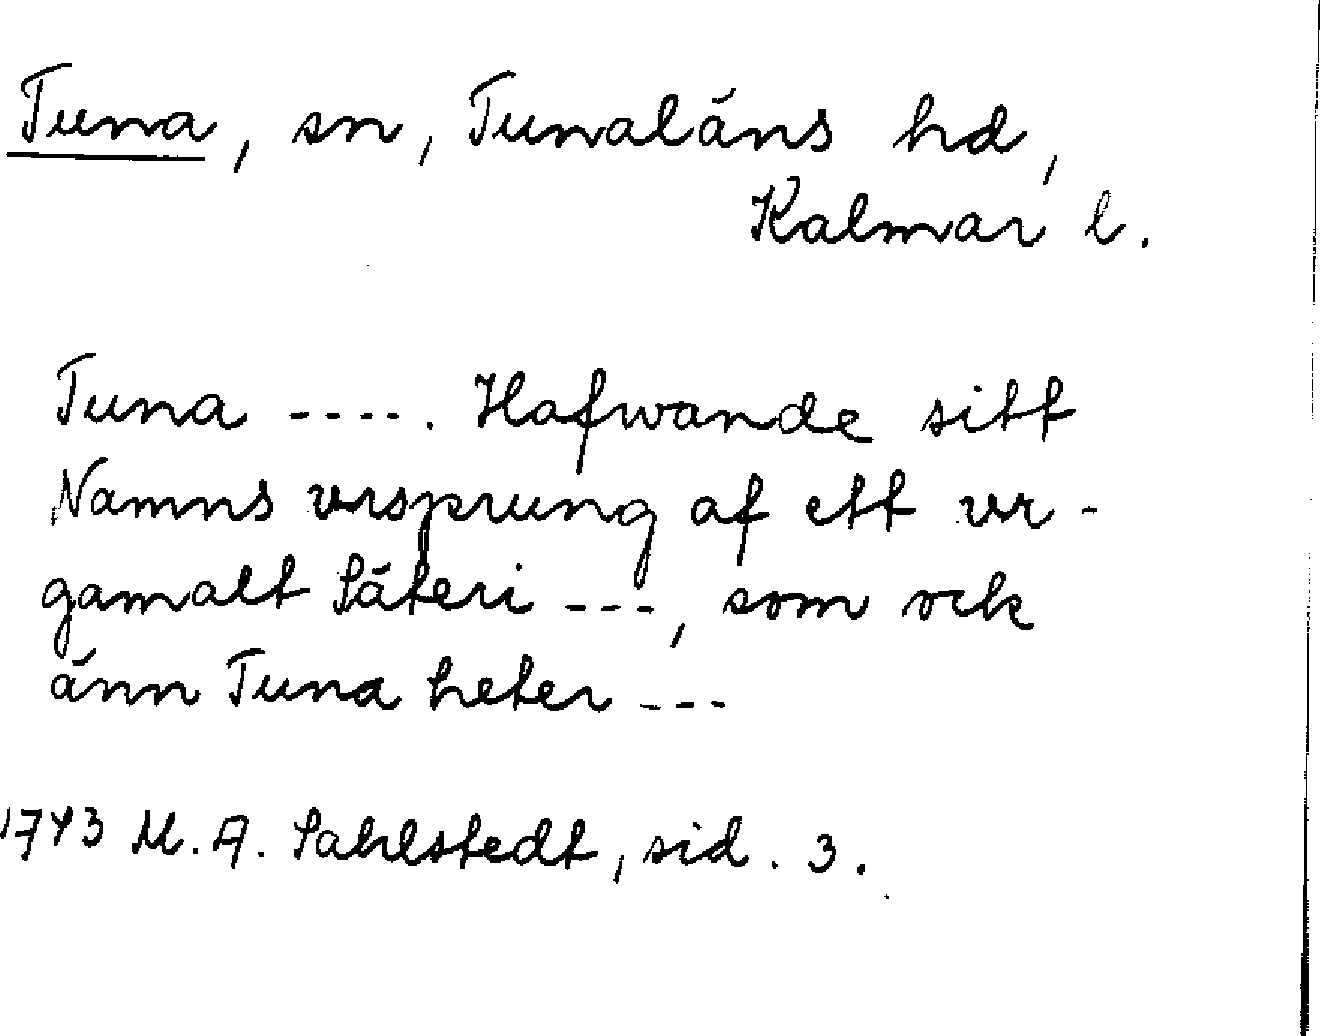 Tuna, sn, Tunaläns hd,
Kalmar l.
Tuna ----. Hafwande sitt
Namns vrsprung af ett vr-
gamalt Säteri ---, som ock
änn Tuna heter ---
1743 M. A. Sahlstedt, sid. 3.